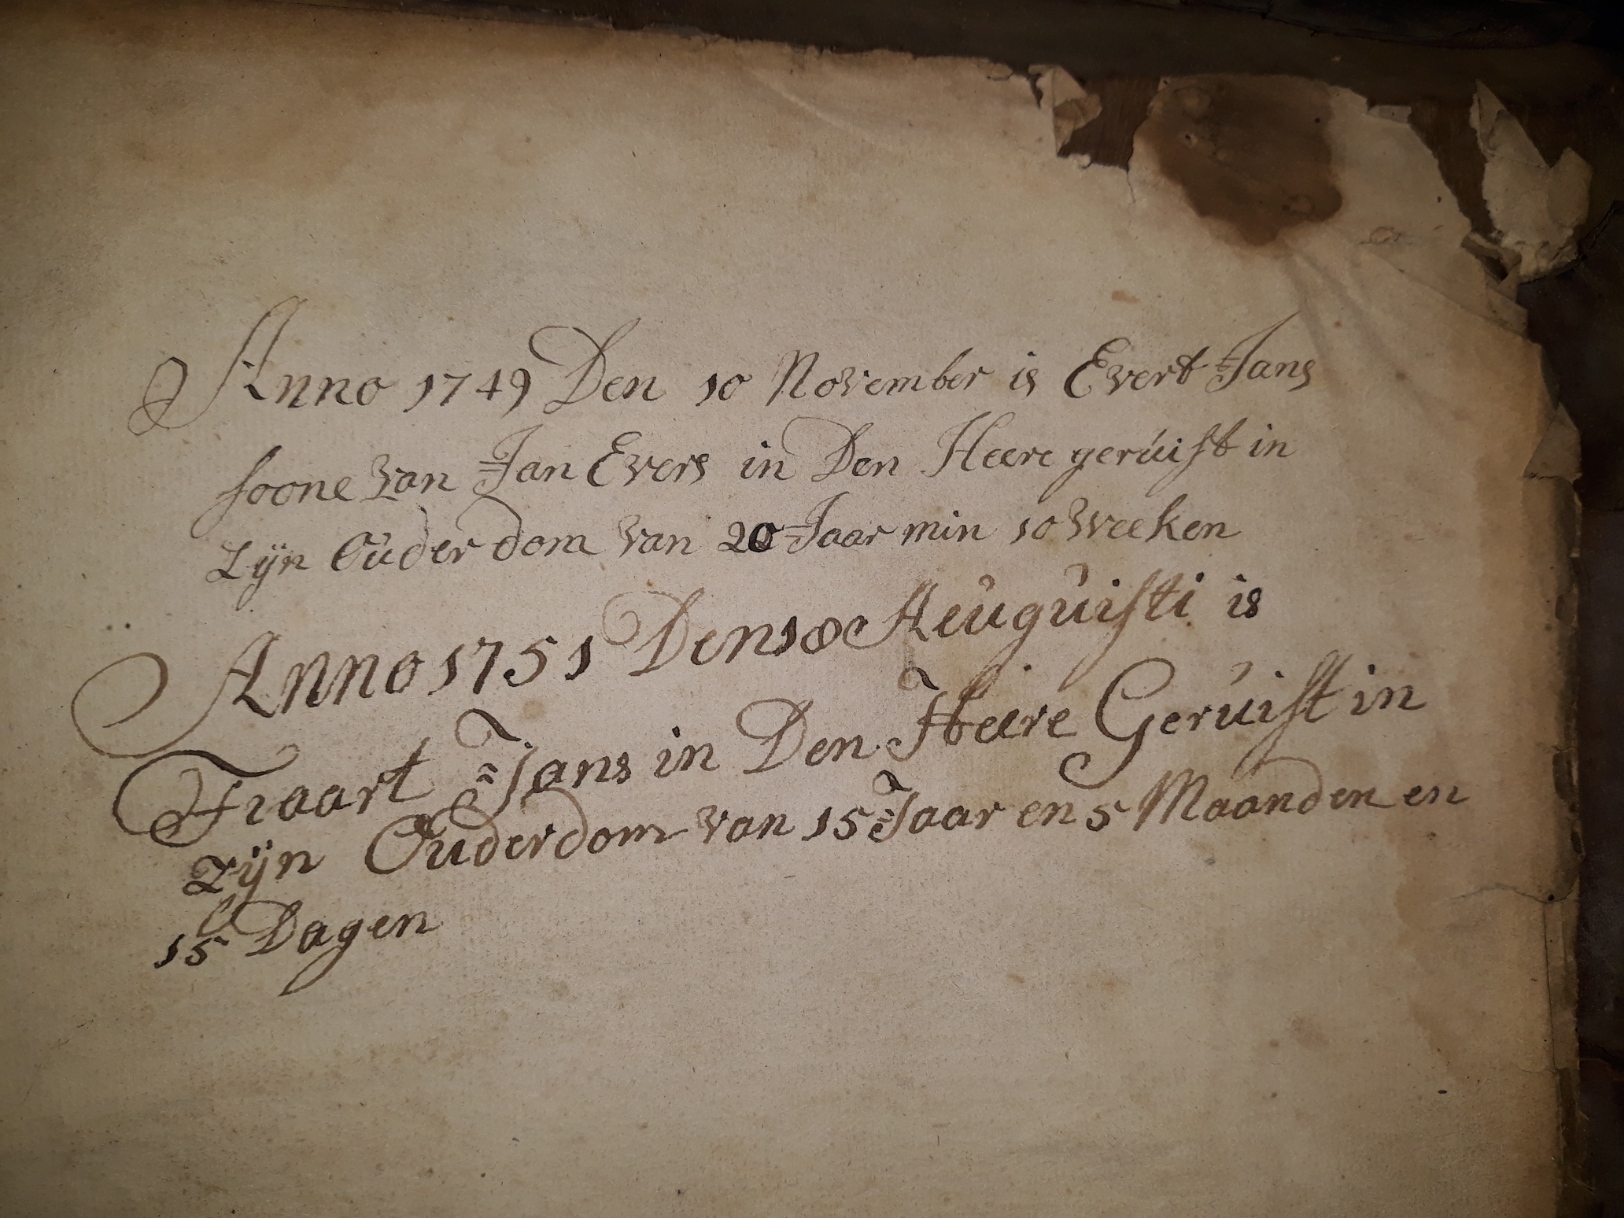 Anno 1749 Den 10 November is Evert Jans
soone van Jan Evers in Den Heere gerúist in
Zÿn Oúderdom van 20 Jaar min 10 Weeken
Anno 1751 Den 18 Aúgúisti is
Jans in Den Heere Gerúist in
zÿn Oúderdom van 15 Jaar en 5 Maanden en
15 Dagen